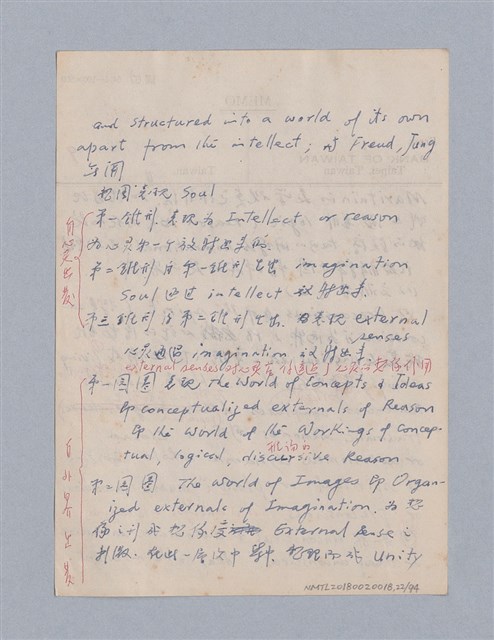 and structured into a world of its own
apart from the intellect; 與 Freud, Jung
不同
起圖表現 Soul
第一錐形表現為 Intellect or reason
為心灵第一个放射出来的
第二錐形自第一錐形生出 imagination
Soul 通过 intellect 放射出来.
第三錐形自第二錐形生出. 為表現 external
senses
心灵通过 imagination 放射出来
external senses
第一圓圈表現 the World of Concepts & Ideas
即 conceptualized externals of Reason
即 the World of the Workings of Concep-
tual, logical, discursive Reason
推論的
第二圓圈 The World of Images 即 Organ-
ized externals of Imagination. 為想
像 External Sense 之
刺激. 在此一層次中 Unity
自內出發
自外界出發
NMTL20180020018,22/94